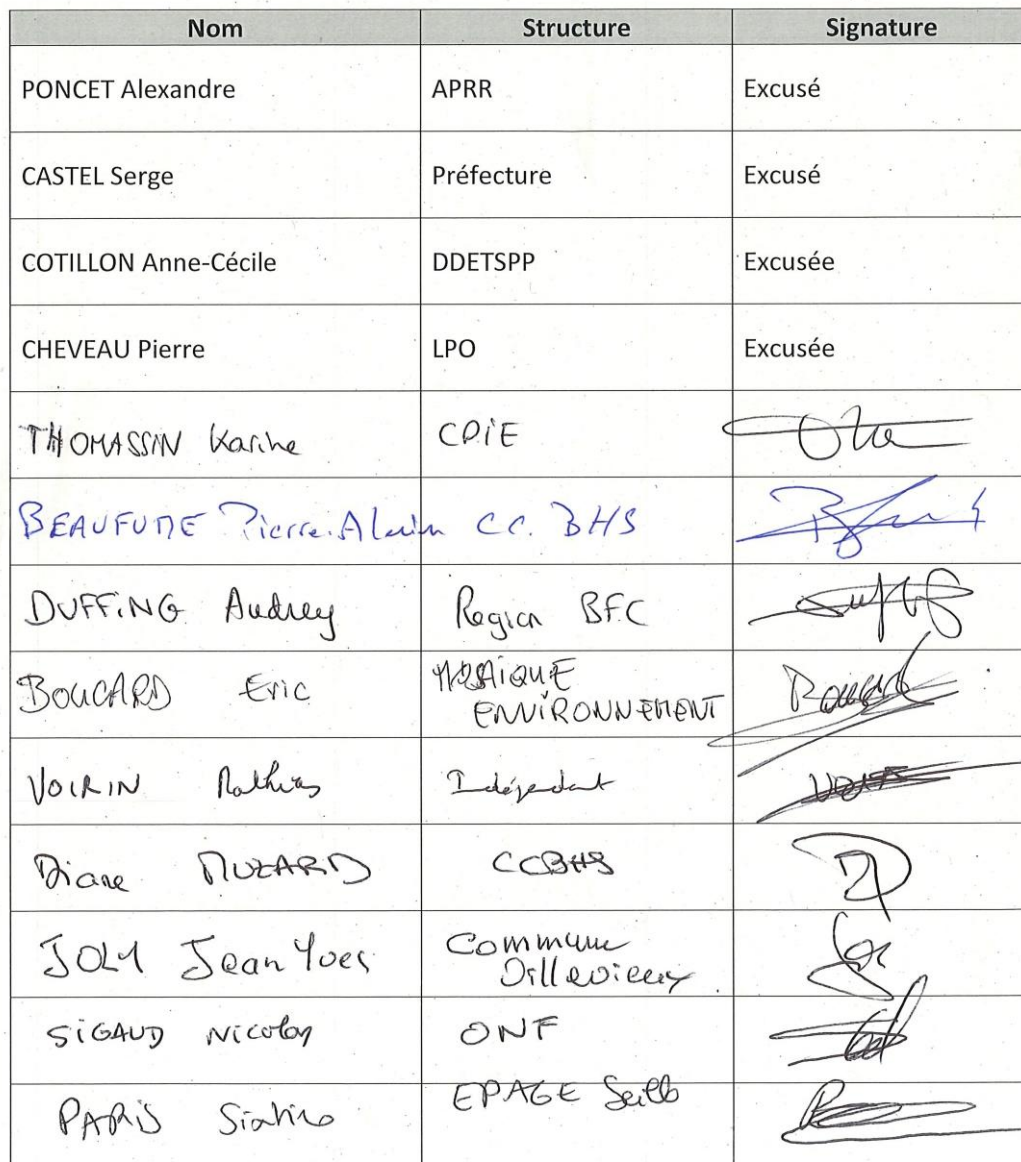 Nom Structure Signature
PONCET Alexandre APRR Excusé
CASTEL Serge Préfecture Excusé
COTILLON Anne-Cécile DDETSPP Excusée
CHEVEAU Pierre LPO Excusée
THOMASSIN Karine CPiE
BEAUFUME Pierre.Alain CC. BHS
DUFFiNG Audrey Region BFC
BOUCARD Eric MOSAiQUE
ENViRONNEMENT
VOIRIN Mathias Indépendant
Diane MUZARD CCBHS
JOLY Jean Yves Commune
SiGAUD Nicolas ONF
PARiS EPAGE Seille